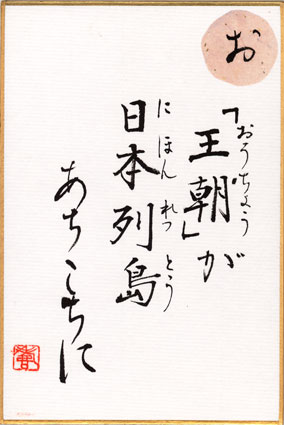 お
「王朝」が
おうちょう
日本列島
にほんれっとう
あちこちに